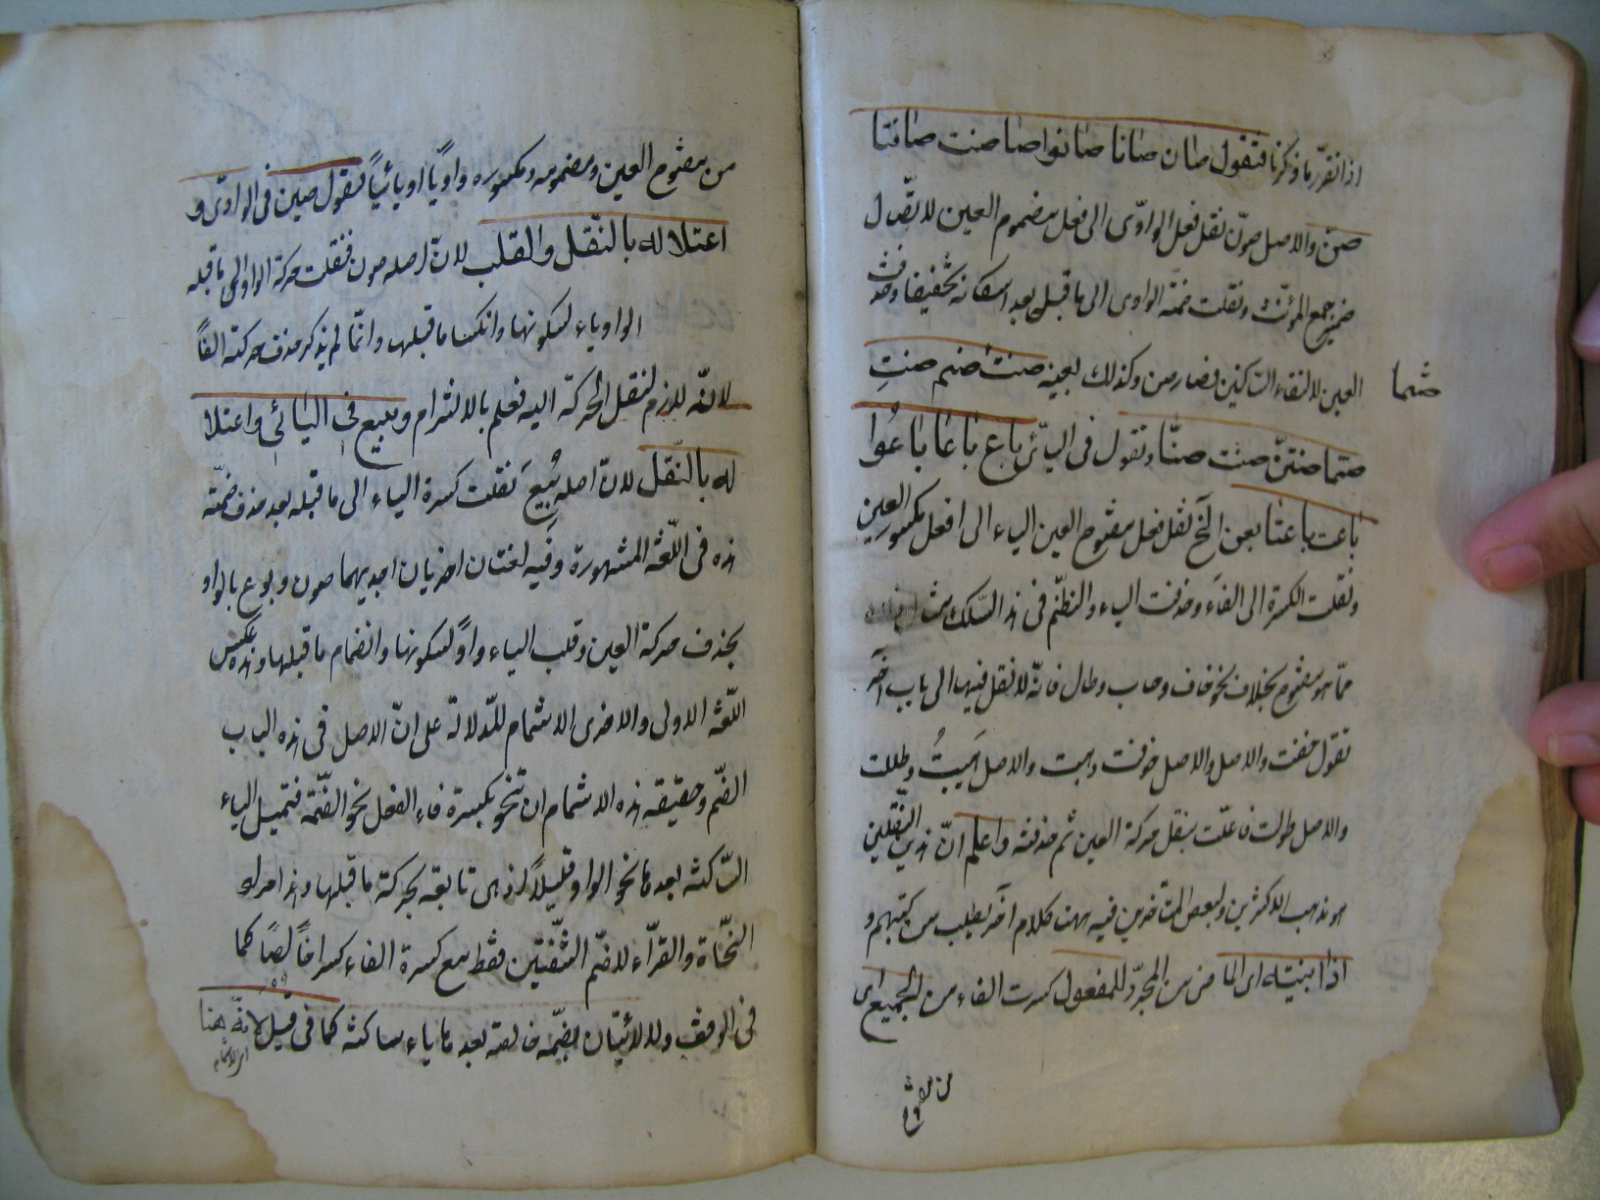 اذا تقرر ما ذكرنا فتقول صان صانا صانوا صانت صانتا
صنّ والاصل صونّ نقل فعل الواوّى الى فعل مضموم العين لا تصال
ضمير جمع المؤنّث ونقلت ضمّة الواوى الى ما قبل بعد اسكانه تخفيفا وحذفت
العين لالتقاء الساكنين فصار صن وكذلك بعينه صنت صنتم صنتِ
صنتما
صنتما صنتنّ صنت صنّا وتقول فى اليائى باع باعا باعُوا
باعت باعتا بعن الخ نقل فعل مفتوح العين الياء الى افعل مكسور العين
ونقلت الكسرة الى الفاء وحذفت الياء والنظم فى هذا السلك
ممّا هو مفتوح بخلاف نحو خاف وهاب وطال فانّه لا نقل فيها الى باب آخر
تقول خفت والاصل والاصل خوفت وهبت والاصل هَيِبتُ وطلت
والاصل طولت فاعلّت بنقل حركة العين ثم حذفته واعلم انّ هذين النقلين
هو مذهب الاكثرين وبعض المتاخرين فيه ههنا كلام آخر يطلب من كتبهم و
اذا بنيته اى الماضى من المجرّد للمفعول كسرت الفاء من الجميع اى
من مفتوح
من مفتوح العين ومضمومه ومكسوره واويّا او يائيّاً فتقول صين فى الواوى و
اعتلاله بالنّقل والقلب لانّ اصله صون فنقلت حركة الواو الى ما قبله
الواو ياء لسكونها وانكسار ما قبلها وانّما لم يذكر حذف حركته الفاً
لانّه لازم لنقل الحركة اليه فعلم بالالتزام وبيع فى اليائى واعتلا
له بالنّقل لانّ اصله بُيِعَ نقلت كسرة الياء الى ما قبله بعد حذف ضمّته
هذه فى اللّغة المشهورة وفيه لغتان اخريان احديهما صون وبوع بالواو
بحذف حركة العين وقلب الياء واوً لسكونها وانضمام ما قبلها وهذه عكس
اللّغة الاولى والاخرى الاشمام للدّلالة على انّ الاصل فى هذه الباب
الضّم وحقيقة هذه الاشمام ان تنحو بكسرة فاء الفعل نحو الضّمّة فتميل الياء
السّاكنة بعدها نحو الواو قليلاً اذ هى تابعة بحركة ما قبلها وهذا مراد
النّحاة والقرّاء لا ضّم الشّفتين فقط مع كسرة الفاء كسرا خالصاً كما
فى الوقف ولا الاتيان بضمّة خالصة بعدها ياء ساكنة كما فى قيل لانّه هنا